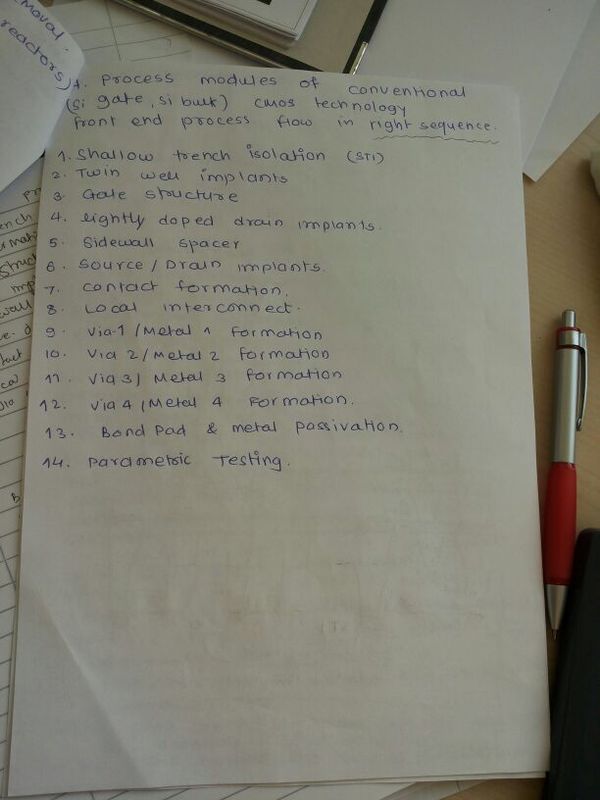 moval.
reactors)
1. Process modules of conventional
(si gate, si bulk) cmos technology
front end process flow in right sequence.
1. Shallow trench isolation (STI)
2. Twin well implants
3. Gate structure
4. lightly doped drain implants.
5. Sidewall spacer
6. Source / Drain implants.
7. Contact formation.
8. Local interconnect.
9. Via-1 / Metal 1 Formation
10. Via 2 / Metal 2 Formation
11. Via 3 / Metal 3 Formation
12. Via 4 / Metal 4 Formation.
13. Bond Pad & metal passivation.
14. Parametric Testing.